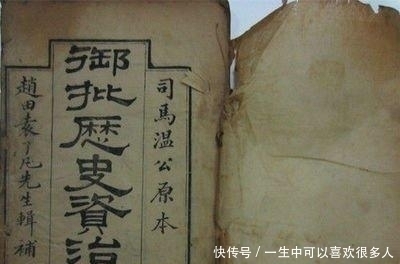 司馬温公原本
御批歷史資治
趙田袁了凡先生輯補
快传号/一生中可以喜欢很多人